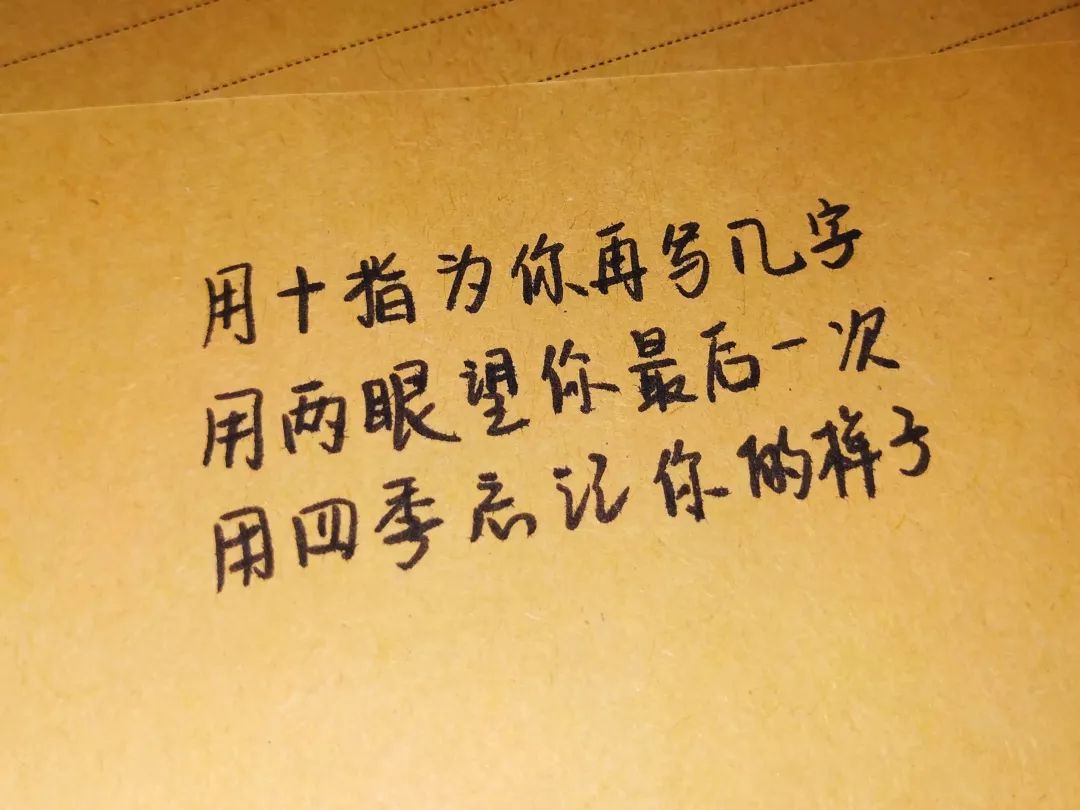 用十指为你再写几字
用两眼望你最后一次
用四季忘记你的样子